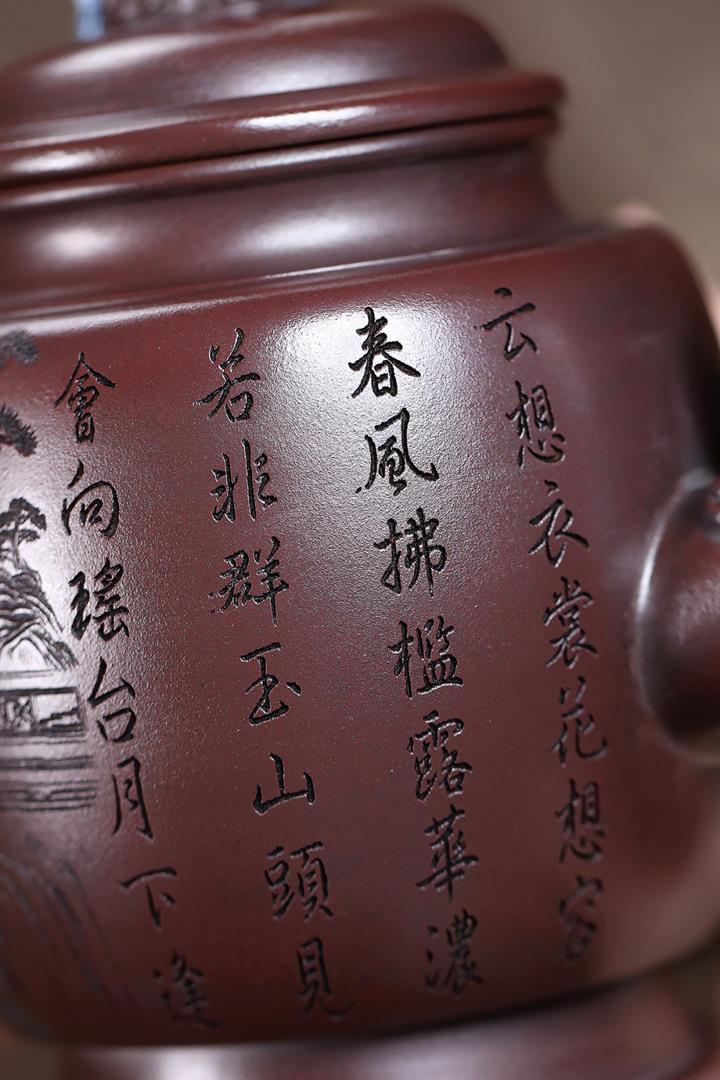 云想衣裳花想容
春風拂檻露華濃
若非群玉山頭見
會向瑤台月下逢